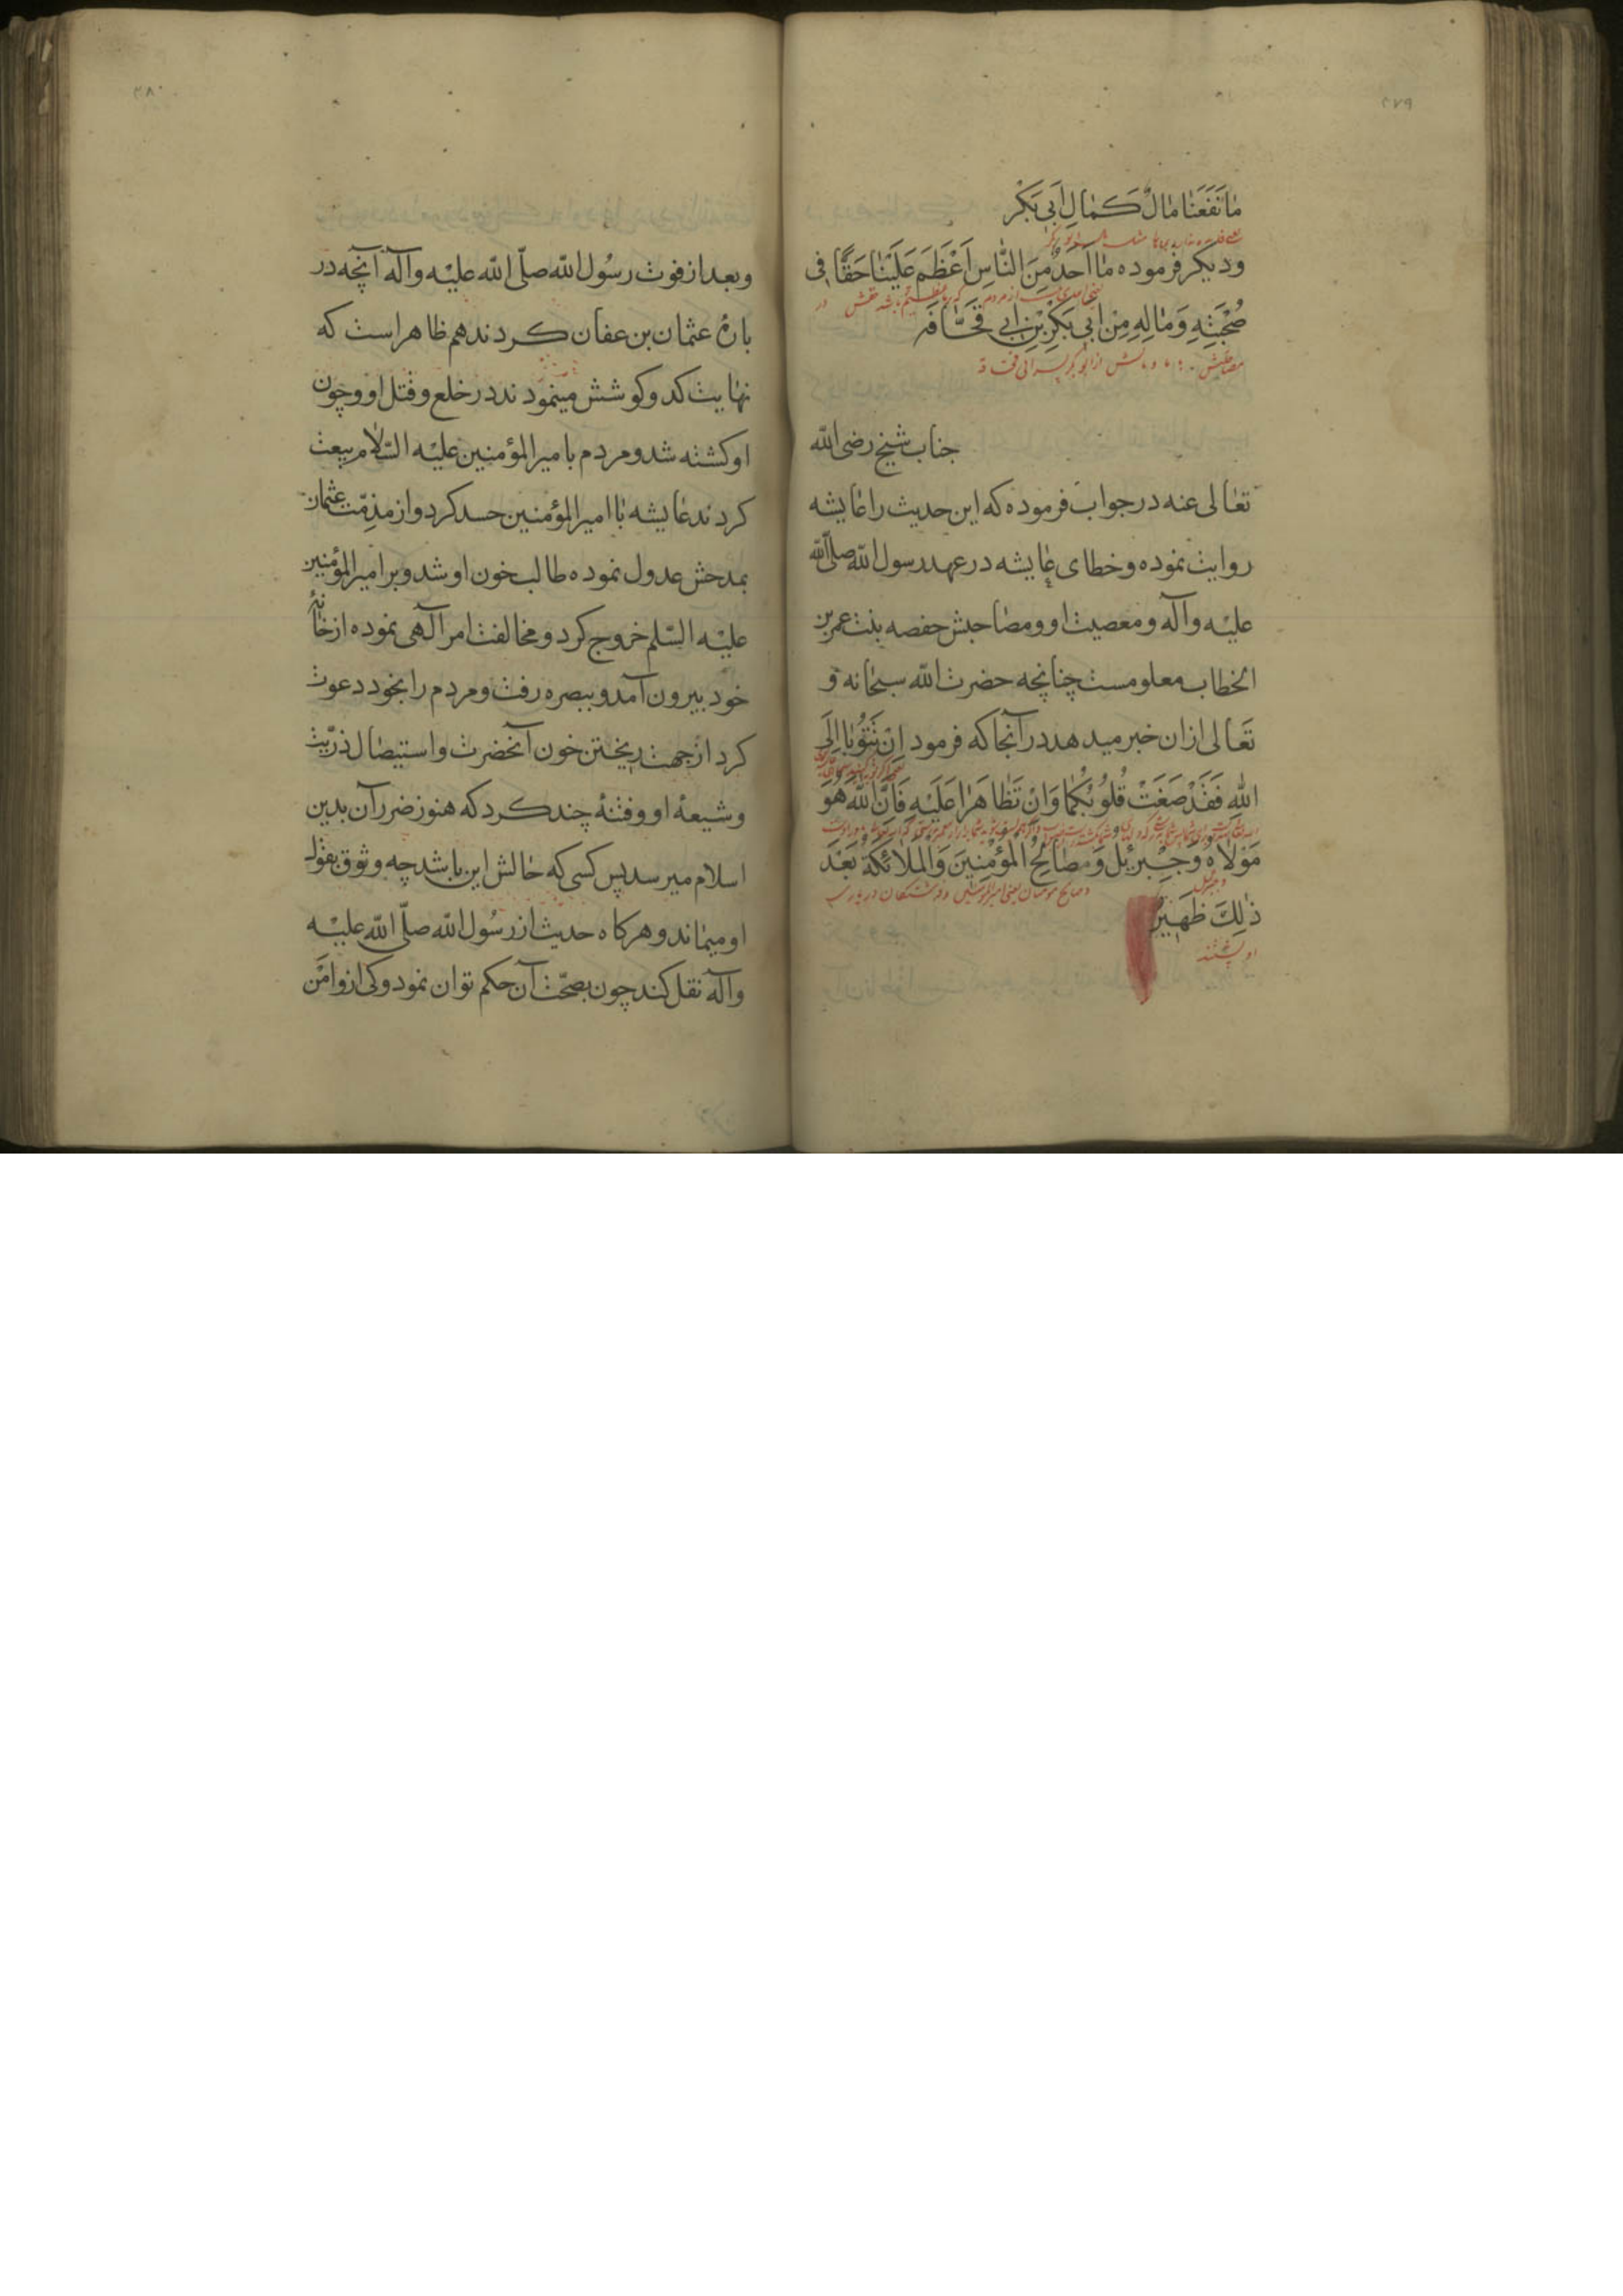 ٢٧٩
مٰا نَفَعَنٰا مٰالٌ كَمٰالِ اَبی بَكْر
ودیکر فرموده مٰا اَحَدٌ مِنَ النّاسِ اَعْظَمَ عَلَيْنٰا حَقًّا فی
صُحْبَتِهِ وَمٰالِهِ مِنْ اَبی بَكْرِ بْنِ ابی قحٰافه
جناب شیخ رضی اللّه
تعٰالی عنه در جواب فرموده که این حدیث را عٰایشه
روایت نموده و خطای عٰایشه در عهد رسول اللّه صلّی اللّه
علیْه وآله و معصیت او و مصٰاحبش حفصه بنت عمر بن
الخطاب معلومست چنانچه حضرت اللّه سبحٰانه و
تَعٰالی ازان خبر میدهد در آنجا که فرمود اِنْ تَتُوبٰا اِلَی
اللّهِ فَقَدْ صَغَتْ قُلُوبُكُمٰا وَاِنْ تَظٰاهَرٰا عَلَيْهِ فَاِنَّ اللّهَ هُوَ
مَوْلاٰهُ وَجِبْرَئيلَ وَصٰالِحُ الْمُؤْمِنينَ وَالْمَلاٰئِكَةُ بَعْدَ
وجبرئیل
وصالح مومنان یعنی امیرالمومنین و فرشتکان
ذٰلِكَ ظَهيرٌ
٢٨٠
وبعد از فوت رسُول اللّه صلّی اللّه علیْه وآله آنچه در
بارهٔ عثمان بن عفان کردند هم ظاهر است که
نهٰایت کد و کوشش مینمودند در خلع و قتل او و چون
او کشته شد و مردم با میر المؤمنین علیْه السّلاٰم بیعت
کردند عٰایشه بٰا امیر المؤمنین حسد کرد و از مذمّت عثمان
بمدحش عدول نموده طالب خون او شد و بر امیر المؤمنین
علیْه السّلم خروج کرد و مخالفت امر آلهی نموده از خٰانهٔ
خود بیرون آمد و ببصره رفت و مردم را بخود دعوت
کرد از جهت ریختن خون آنحضرت و استیصٰال ذرّیت
وشیعهٔ او و فتنهٔ چند کرد که هنوز ضرر آن بدین
اسلام میرسد پس کسی که حٰالش این باشد چه وثوق بقول
او میمٰاند و هرکاه حدیث از رسُول اللّه صلّی اللّه علیْه
وآله نقل کند چون بصحّت آن حکم توان نمود و کی ازو امَن